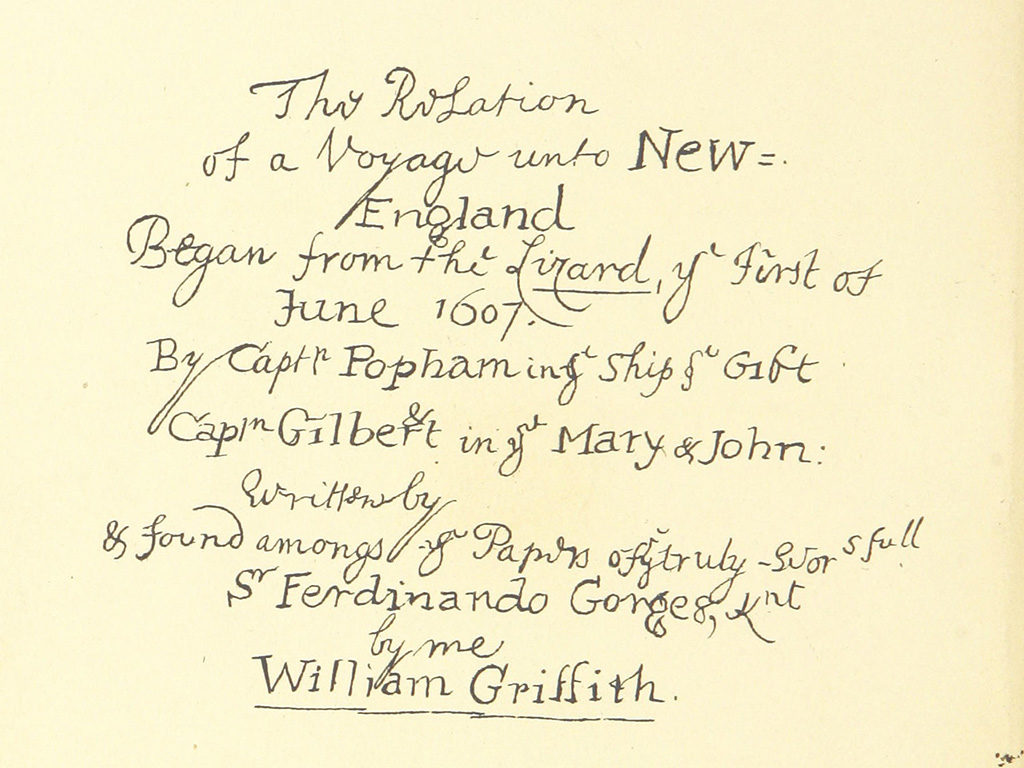 The Relation
of a Voyage unto New=.
England
Began from the Lizard, yᵉ First of
June 1607.
By Captⁿ Popham in yᵉ Ship yᵉ Gift
Captⁿ Gilbert & in yᵉ Mary & John:
Written by
& found amongs yᵉ Papers of yᵉ truly Worsfull
Sʳ Ferdinando Gorges, Kⁿᵗ
by me
William Griffith.